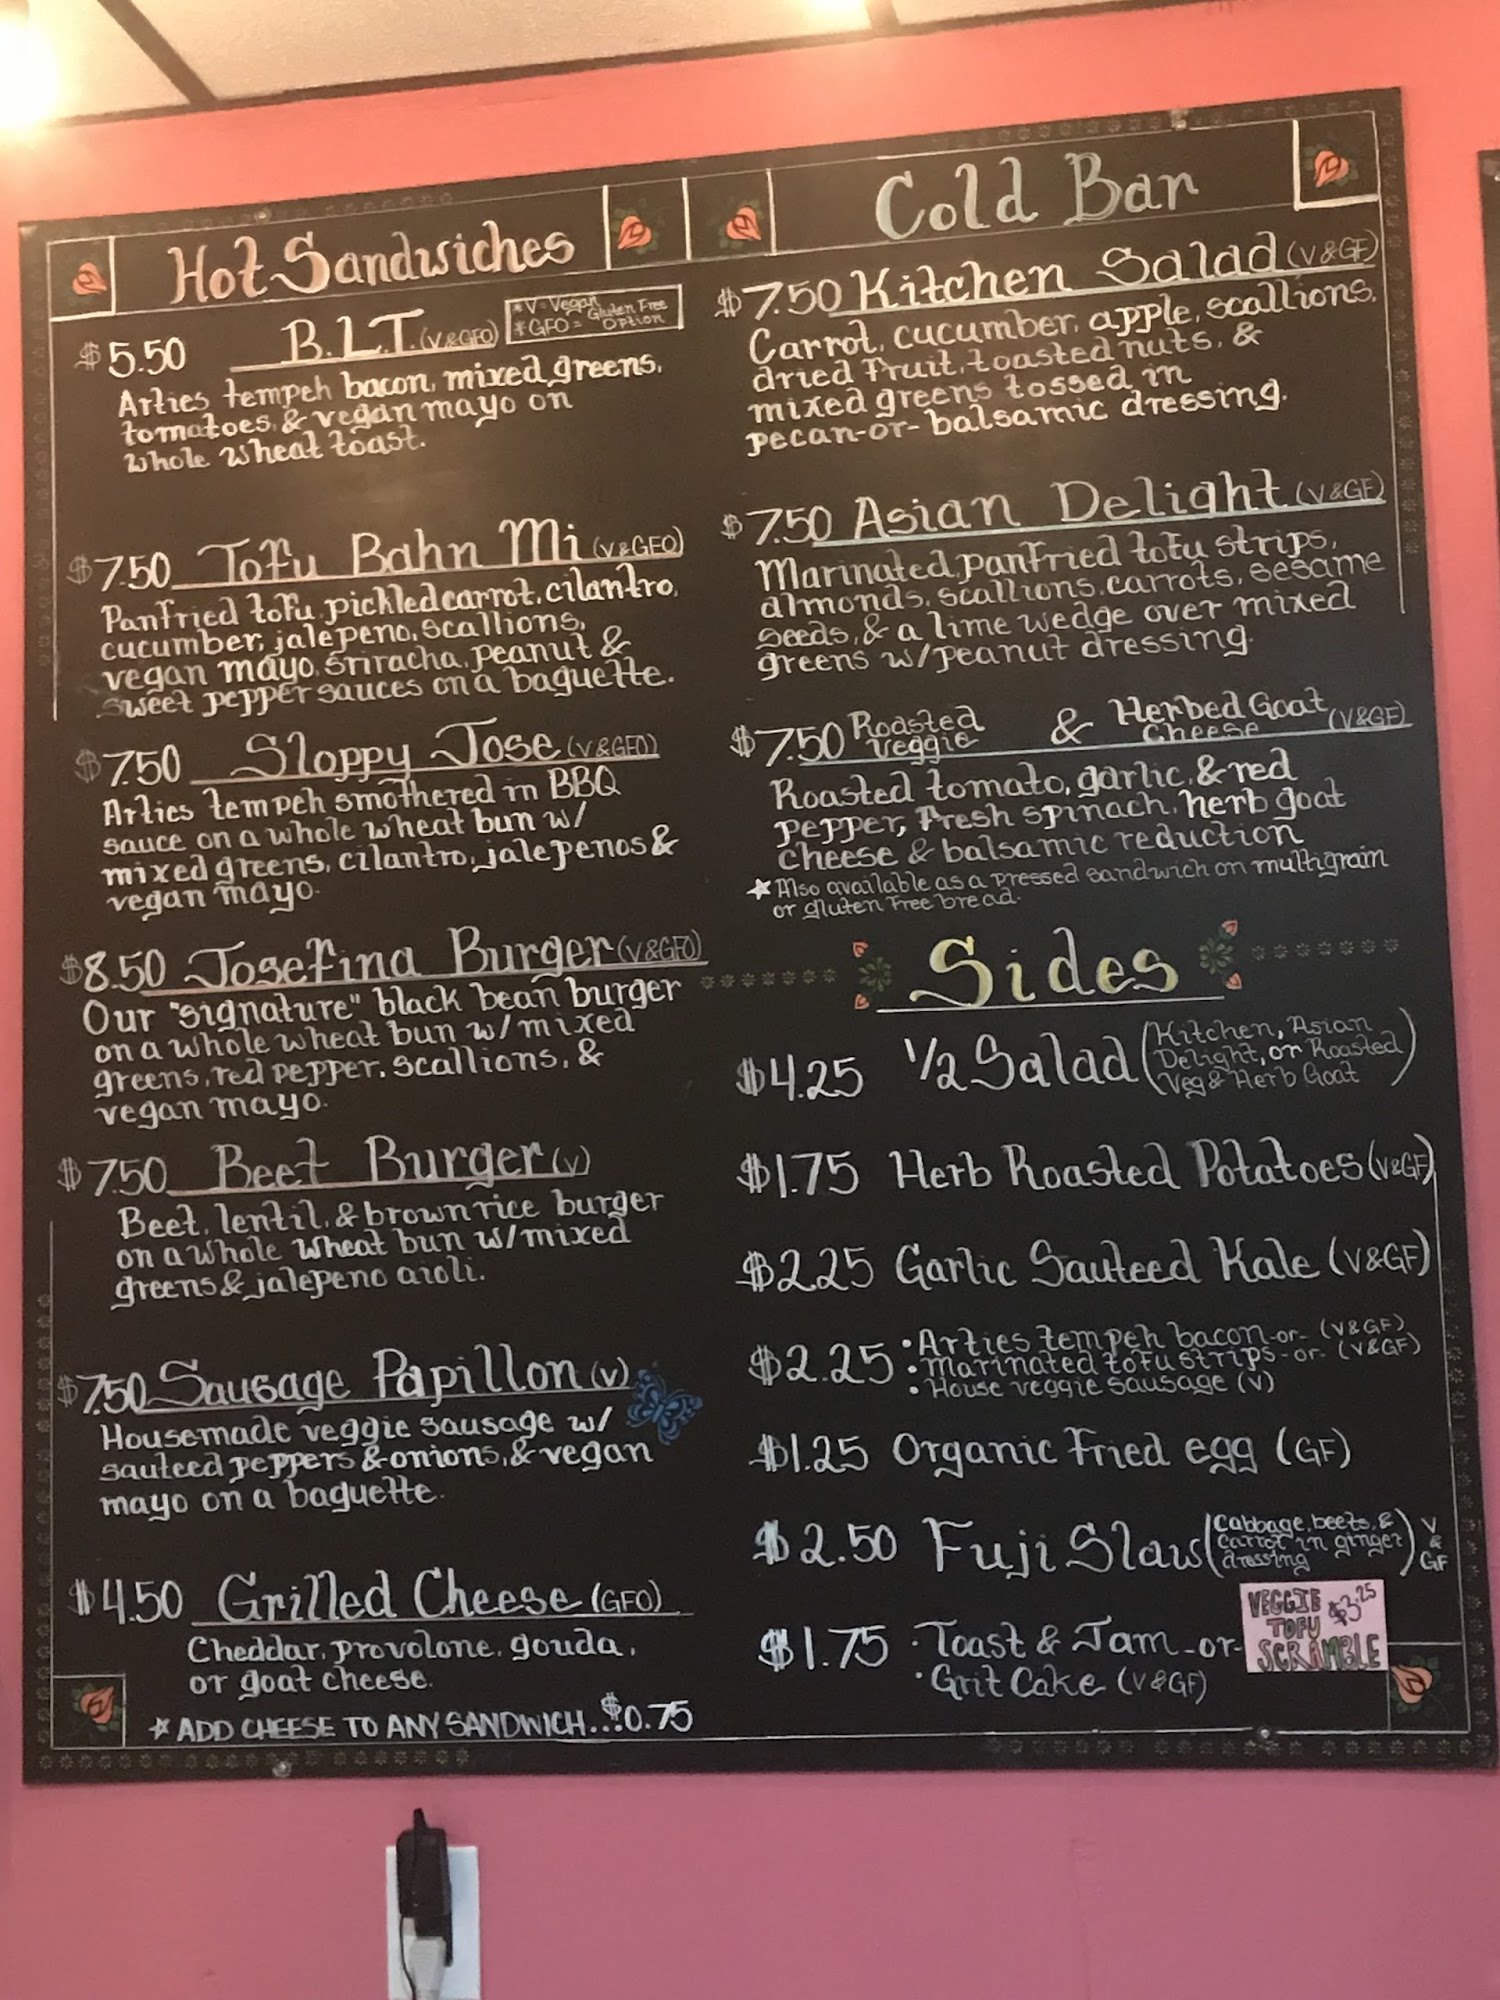 Hot Sandwiches
*V=Vegan
*GFO= Gluten Free Option
$5.50 B.L.T. (V&GFO)
Arties tempeh bacon, mixed greens,
tomatoes, & vegan mayo on
whole wheat toast.
$7.50 Tofu Bahn Mi (V&GFO)
Panfried tofu, pickled carrot, cilantro,
cucumber, jalepeno, scallions,
vegan mayo, sriracha, peanut &
sweet pepper sauces on a baguette.
$7.50 Sloppy Jose (V&GFO)
Arties tempeh smothered in BBQ
sauce on a whole wheat bun w/
mixed greens, cilantro, jalepenos &
vegan mayo.
$8.50 Josefina Burger (V&GFO)
Our "signature" black bean burger
on a whole wheat bun w/ mixed
greens, red pepper, scallions, &
vegan mayo.
$7.50 Beet Burger (V)
Beet, lentil, & brown rice burger
on a whole wheat bun w/ mixed
greens & jalepeno aioli.
$7.50 Sausage Papillon (V)
Housemade veggie sausage w/
sauteed peppers & onions, & vegan
mayo on a baguette.
$4.50 Grilled Cheese (GFO)
Cheddar, provolone, gouda,
or goat cheese.
* ADD CHEESE TO ANY SANDWICH...$0.75
Cold Bar
$7.50 Kitchen Salad (V&GF)
Carrot, cucumber, apple, scallions,
dried fruit, toasted nuts, &
mixed greens tossed in
pecan-or-balsamic dressing.
$7.50 Asian Delight (V&GF)
Marinated, panfried tofu strips,
almonds, scallions, carrots, sesame
seeds, & a lime wedge over mixed
greens w/ peanut dressing.
$7.50 Roasted Veggie & Herbed Goat Cheese (V&GF)
Roasted tomato, garlic, & red
pepper, fresh spinach, herb goat
cheese & balsamic reduction
* Also available as a pressed sandwich on multigrain
or gluten free bread.
Sides
$4.25 1/2 Salad (Kitchen, Asian
Delight, or Roasted
Veg & Herb Goat)
$1.75 Herb Roasted Potatoes (V&GF)
$2.25 Garlic Sauteed Kale (V&GF)
$2.25 • Arties tempeh bacon -or- (V&GF)
• Marinated tofu strips -or- (V&GF)
• House veggie sausage (V)
$1.25 Organic Fried egg (GF)
$2.50 Fuji Slaw (Cabbage, beets, &
carrot in ginger
dressing) V & GF
$1.75 • Toast & Jam -or-
• Grit Cake (V&GF)
VEGGIE $3.25
TOFU
SCRAMBLE